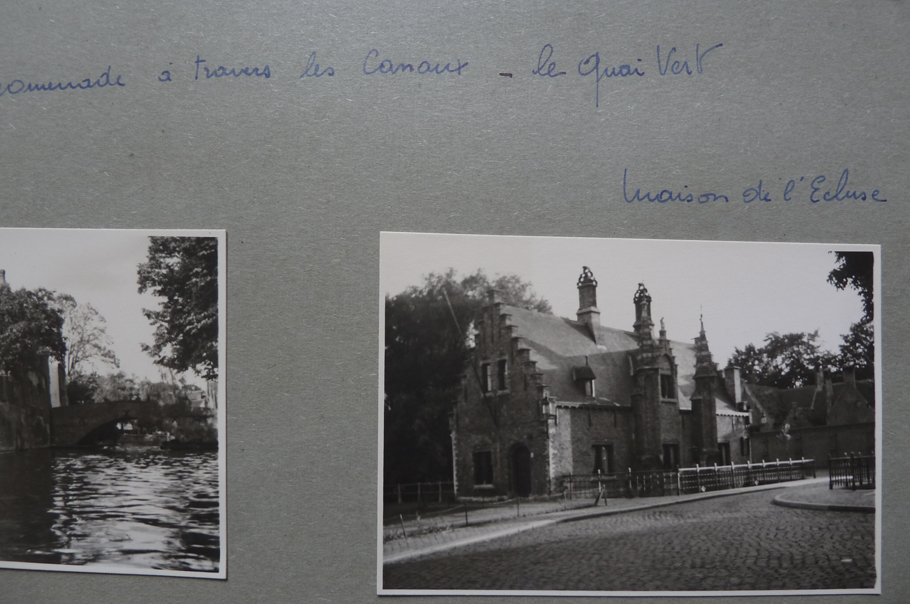 romenade à travers les Canaux - le Quai Vert
Maison de l'Ecluse